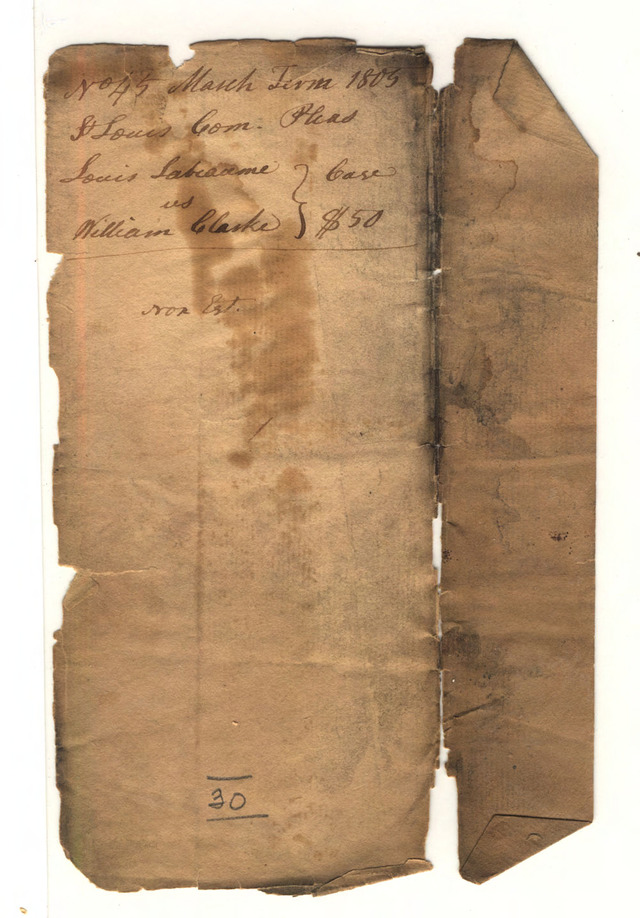 No 45 March Term 1805
St Louis Com. Pleas
Louis Labeaume } Case
vs
William Clarke } $50
Non Est.
30